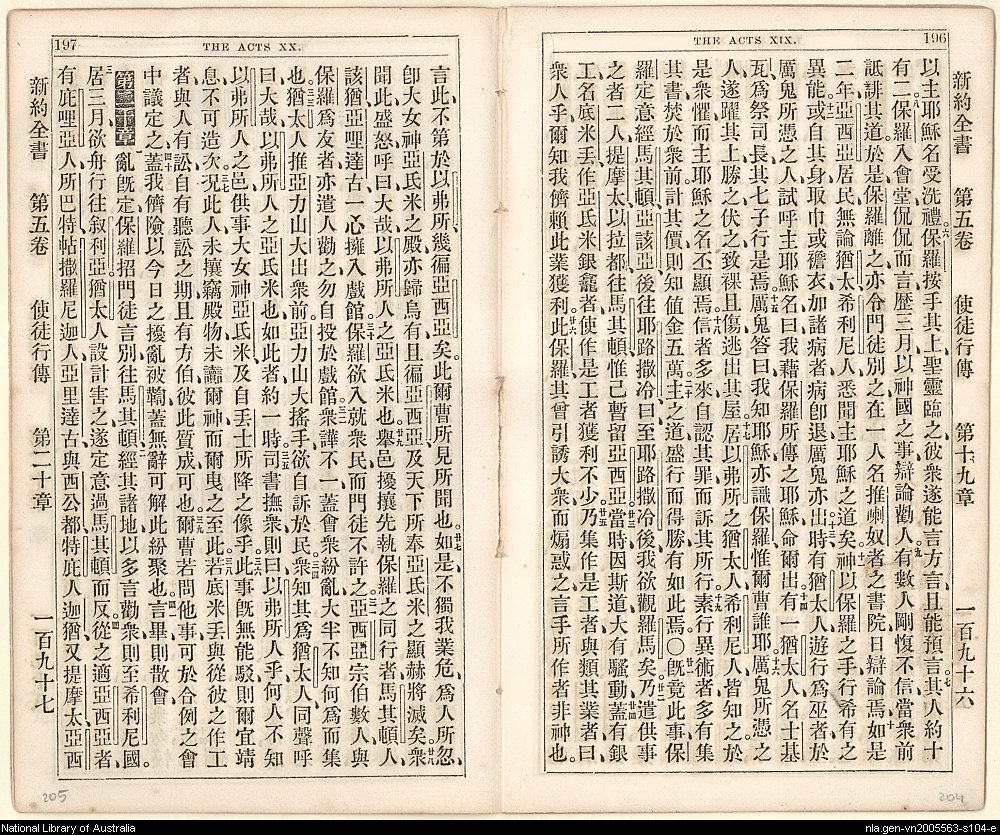 THE ACTS XIX.
196
新約全書 第五卷 使徒行傳 第十九章 一百九十六
以主耶穌名受洗禮六保羅按手其上聖靈臨之彼衆遂能言方言且能預言七其人約十
有二八保羅入會堂侃侃而言歷三月以神國之事辯論勸人九有數人剛愎不信當衆前
詆誹其道於是保羅離之亦令門徒別之在一人名推喇奴者之書院日辯論焉十如是
二年亞西亞居民無論猶太希利尼人悉聞主耶穌之道矣十一神以保羅之手行希有之
異能十二或自其身取巾或襜衣加諸病者病卽退厲鬼亦出十三時有猶太人遊行爲巫者於
厲鬼所憑之人試呼主耶穌名曰我藉保羅所傳之耶穌命爾出十四有一猶太人名士基
瓦爲祭司長其七子行是焉十五厲鬼答曰我知耶穌亦識保羅惟爾曹誰耶十六厲鬼所憑之
人遂躍其上勝之伏之致裸且傷逃出其屋十七居以弗所之猶太人希利尼人皆知之於
是衆懼而主耶穌之名丕顯焉十八信者多來自認其罪而訴其所行十九素行異術者多有集
其書焚於衆前計其價則知值金五萬二十主之道盛行而得勝有如此焉〇廿一旣竟此事保
羅定意經馬其頓亞該亞後往耶路撒冷曰至耶路撒冷後我欲觀羅馬矣廿二乃遣供事
之者二人提摩太以拉都往馬其頓惟己暫留亞西亞廿三當時因斯道大有騷動廿四蓋有銀
工名底米丢作亞氐米銀龕者使作是工者獲利不少廿五乃集作是工者與類其業者曰
衆人乎爾知我儕賴此業獲利廿六此保羅其曾引誘大衆而煽惑之言手所作者非神也
204
THE ACTS XX.
197
言此不第於以弗所幾徧亞西亞矣此爾曹所見所聞也廿七如是不獨我業危爲人所忽
卽大女神亞氐米之殿亦歸烏有且徧亞西亞及天下所奉亞氐米之顯赫將滅矣廿八衆
聞此盛怒呼曰大哉以弗所人之亞氐米也廿九舉邑擾攘先執保羅之同行者馬其頓人
該猶亞哩達古一心擁入戲館三十保羅欲入就衆民而門徒不許之三一亞西亞宗伯數人與
保羅爲友者亦遣人勸之勿自投於戲館三二衆譁不一蓋會衆紛亂大半不知何爲而集
也三三猶太人推亞力山大出衆前亞力山大搖手欲自訴於民三四衆知其爲猶太人同聲呼
曰大哉以弗所人之亞氐米也如此者約一時三五司書撫衆則曰以弗所人乎何人不知
以弗所人之邑供事大女神亞氐米及自丢士所降之像乎三六此事旣無能駁則爾宜靖
息不可造次三七況此人未攘竊殿物未讟爾神而爾曳之至此三八若底米丢與從彼之作工
者與人有訟自有聽訟之期且有方伯彼此質成可也三九爾曹若問他事可於合例之會
中議定之四十蓋我儕險以今日之擾亂被䪿蓋無辭可解此紛聚也四一言畢則散會
第二十章 亂旣定保羅招門徒言別往馬其頓二經其諸地以多言勸衆則至希利尼國
三居三月欲舟行往敘利亞猶太人設計害之遂定意過馬其頓而反四從之適亞西亞者
有庇哩亞人所巴特帖撒羅尼迦人亞里達古與西公都特庇人迦猶又提摩太亞西
新約全書 第五卷 使徒行傳 第二十章 一百九十七
205
National Library of Australia
nla.gen-vn2005563-s104-e